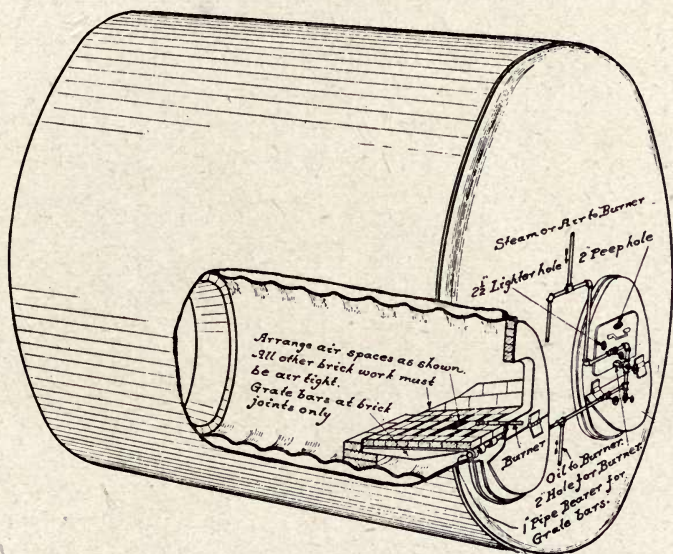 Steam or Air to Burner
2" Peep hole
2½" Lighter hole
Arrange air spaces as shown.
All other brick work must
be air tight.
Grate bars at brick
joints only
Burner
Oil to Burner.
2" Hole for Burner.
1" Pipe Bearer for
Grate bars.